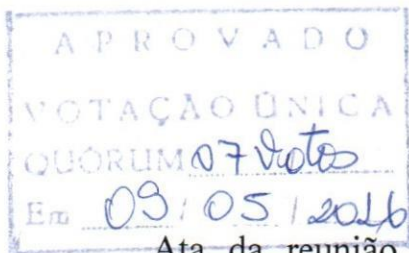 APROVADO
VOTAÇÃO ÚNICA
QUÓRUM 07 Votos
Em 09/05/2016
Ata da reunião